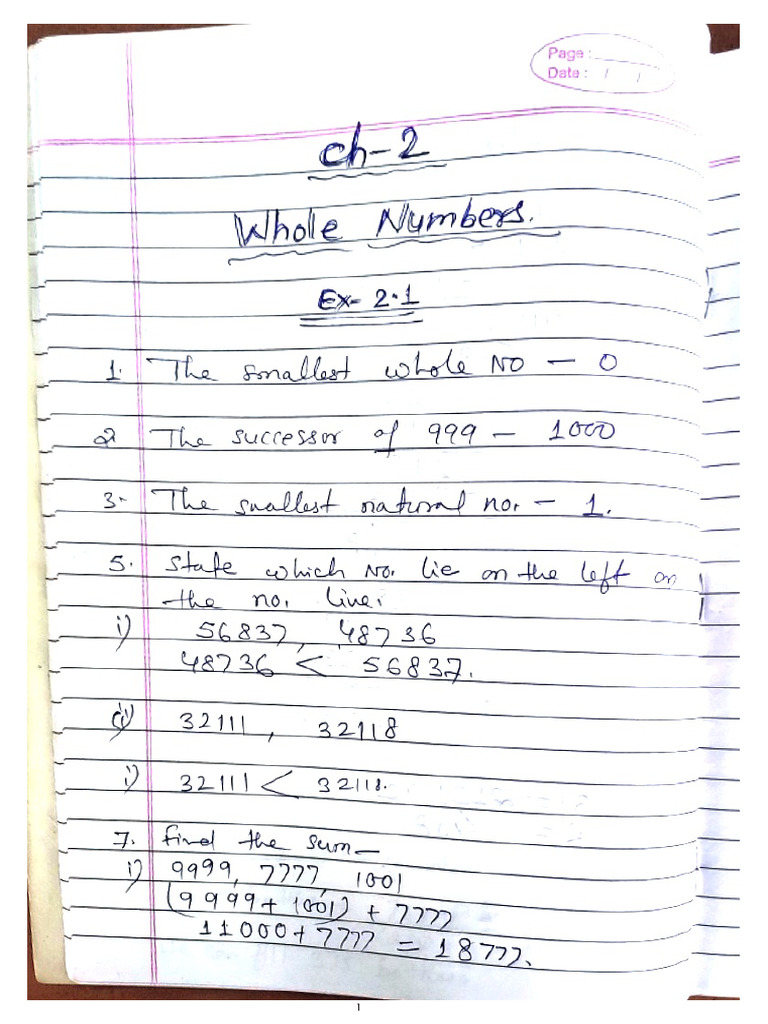 Page :
Date : / /
Ch-2
Whole Numbers.
Ex- 2.1
1. The smallest whole NO - 0
2 The successor of 999 - 1000
3. The smallest natural no. - 1.
5. State which No. lie on the left on
the no. line.
i) 56837, 48736
48736 < 56837.
ii) 32111, 32118
i) 32111 < 32118.
7. find the sum-
i) 9999, 7777, 1001
(9999 + 1001) + 7777
11000 + 7777 = 18777.
1